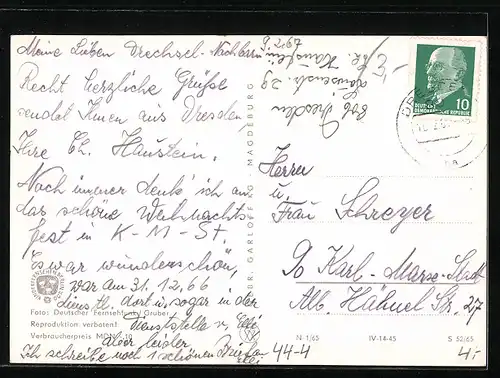 Meine Lieben Drechsel-Nachbarn
Recht herzliche Grüße
sendet Ihnen aus Dresden
Ihre Ch. Haustein.
Noch immer denk' ich an
das schöne Weihnachts-
fest in K-M-St.
Es war wunderschön,
war am 31.12.66
dienstl. dort u. sogar in der
Dienststelle v.
aber leider
Ich schreibe noch 1 schönen
Ch. Haustein
806 Dresden
29
DEUTSCHE
DEMOKRATISCHE REPUBLIK
10
Herrn
u.
Frau Schreyer
90 Karl-Marx-Stadt
Alb. Hähnel Str. 27
GEBR. GARLOFF KG MAGDEBURG
Foto: Deutscher Fernsehfunk/Gruber
Reproduktion verboten!
Verbraucherpreis MDN
N 1/65
IV-14-45
S 52/65
44-4
4,-